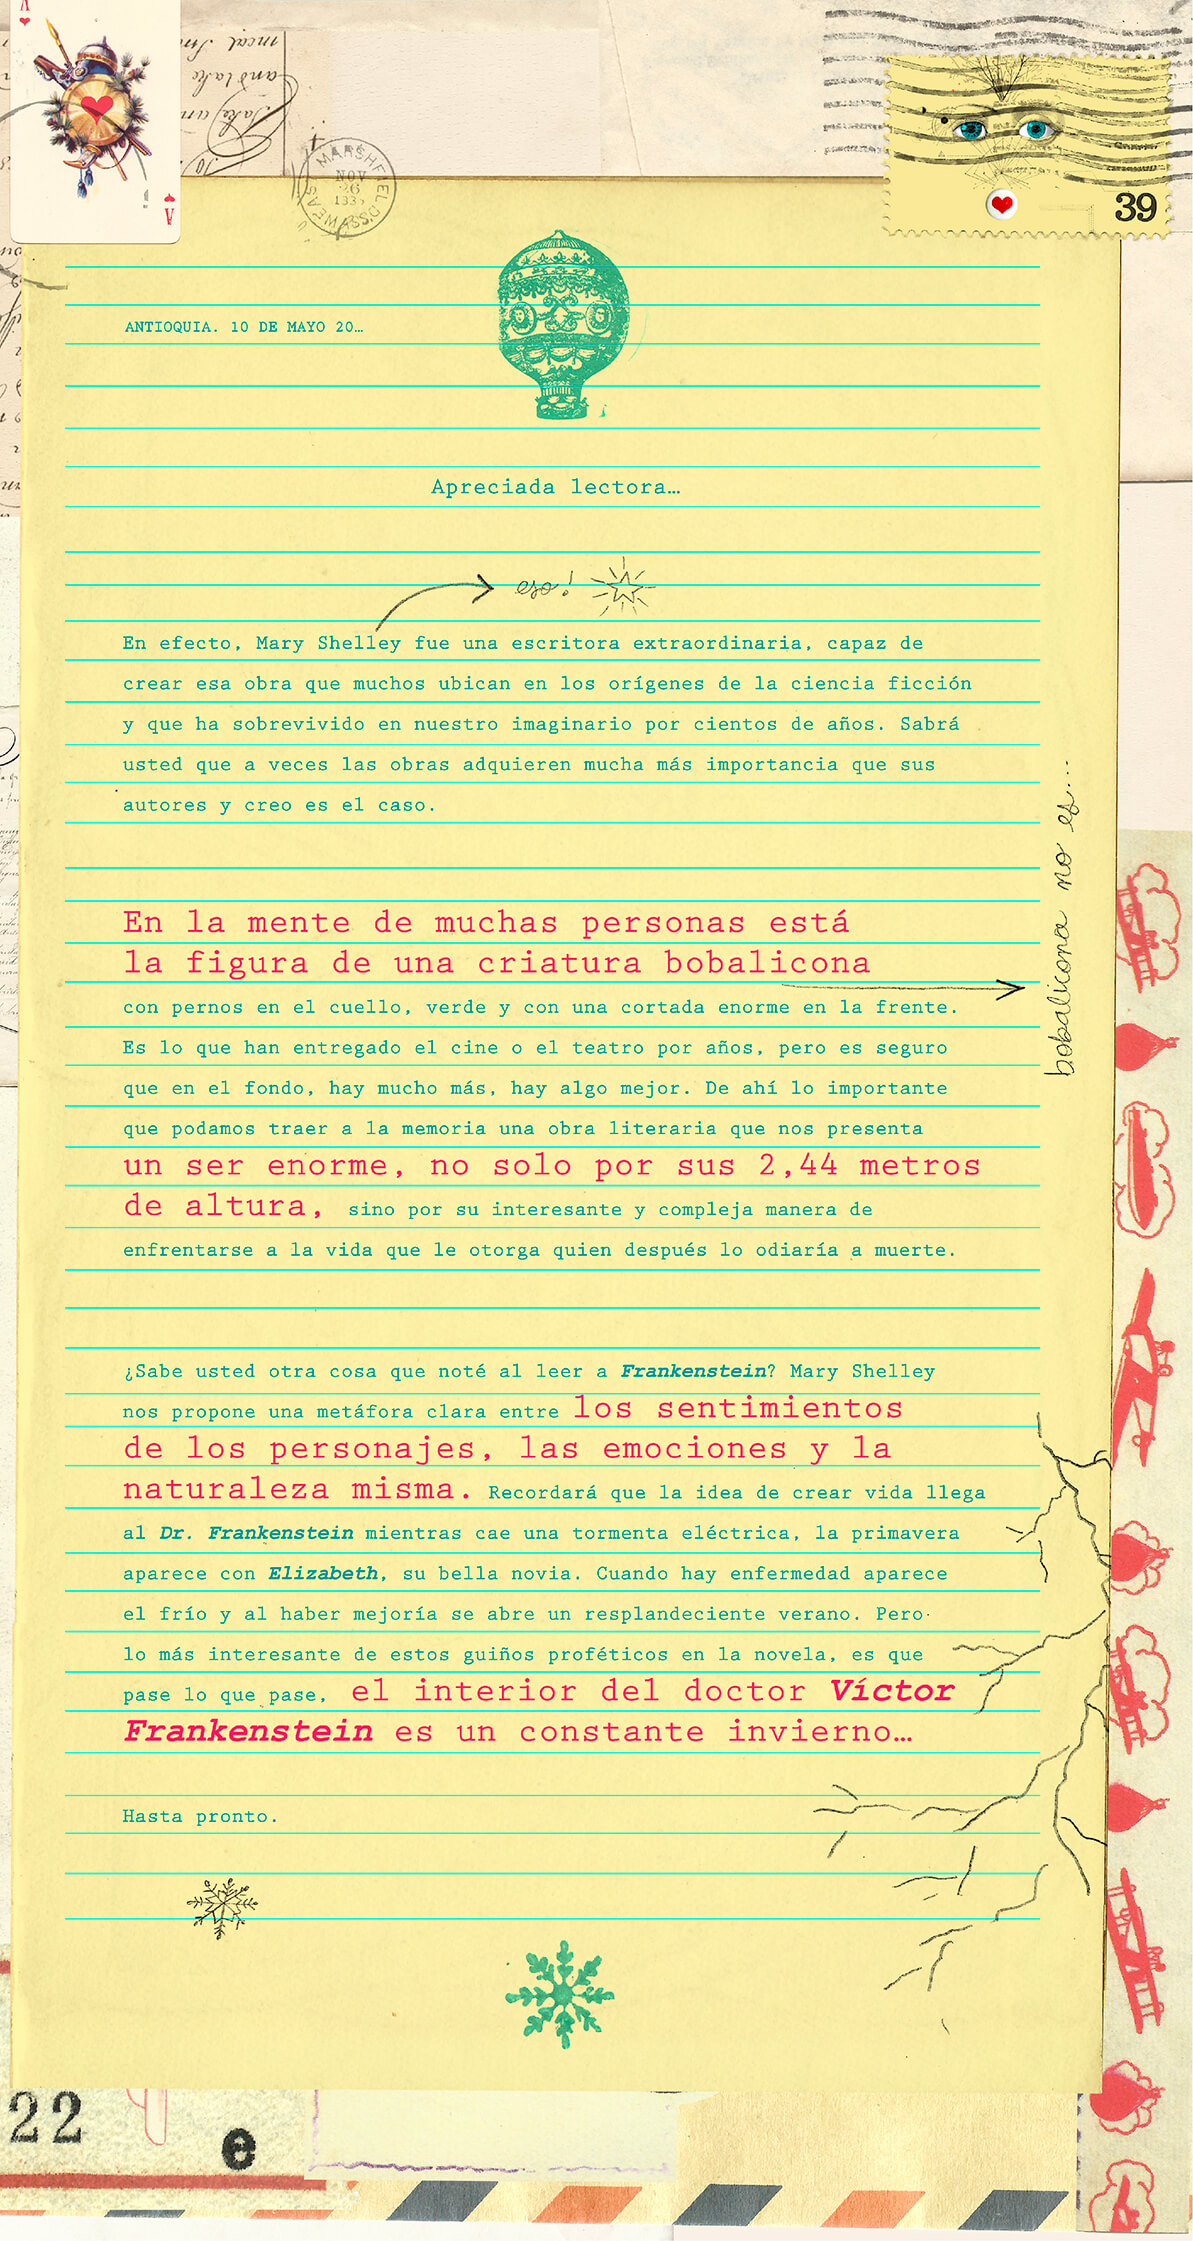 A
A
MARSHFIELD
NOV
26
MASS.
39
ANTIOQUIA. 10 DE MAYO 20…
Apreciada lectora…
eso!
En efecto, Mary Shelley fue una escritora extraordinaria, capaz de
crear esa obra que muchos ubican en los orígenes de la ciencia ficción
y que ha sobrevivido en nuestro imaginario por cientos de años. Sabrá
usted que a veces las obras adquieren mucha más importancia que sus
autores y creo es el caso.
En la mente de muchas personas está
la figura de una criatura bobalicona
bobalicona no es...
con pernos en el cuello, verde y con una cortada enorme en la frente.
Es lo que han entregado el cine o el teatro por años, pero es seguro
que en el fondo, hay mucho más, hay algo mejor. De ahí lo importante
que podamos traer a la memoria una obra literaria que nos presenta
un ser enorme, no solo por sus 2,44 metros
de altura, sino por su interesante y compleja manera de
enfrentarse a la vida que le otorga quien después lo odiaría a muerte.
¿Sabe usted otra cosa que noté al leer a Frankenstein? Mary Shelley
nos propone una metáfora clara entre los sentimientos
de los personajes, las emociones y la
naturaleza misma. Recordará que la idea de crear vida llega
al Dr. Frankenstein mientras cae una tormenta eléctrica, la primavera
aparece con Elizabeth, su bella novia. Cuando hay enfermedad aparece
el frío y al haber mejoría se abre un resplandeciente verano. Pero
lo más interesante de estos guiños proféticos en la novela, es que
pase lo que pase, el interior del doctor Víctor
Frankenstein es un constante invierno…
Hasta pronto.
22
e